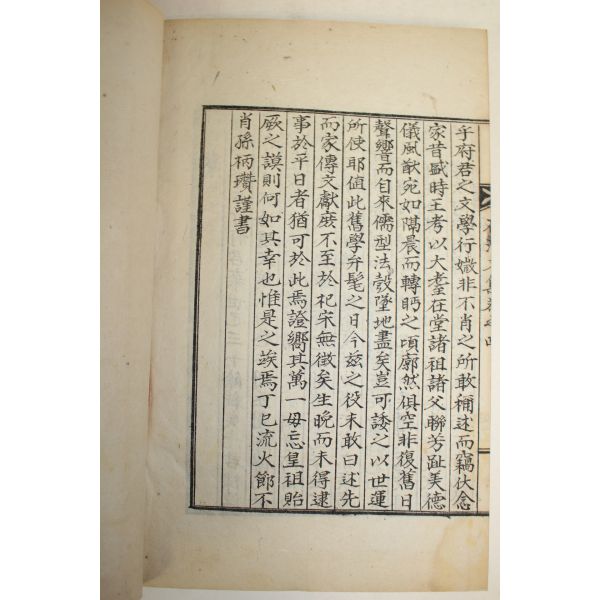 乎府君之文學行媺非不肖之所敢稱述而竊伏念
家昔盛時王考以大耋在堂諸祖諸父聯芳趾美德
儀風猷宛如隔晨而轉眄之頃廓然俱空非復舊日
聲響而自來儒型法彀墜地盡矣豈可諉之以世運
所使耶値此舊學弁髦之日今玆之役未敢曰述先
而家傳文獻庶不至於杞宋無徵矣生晩而未得逮
事於平日者猶可於此焉證嚮其萬一毋忘皇祖貽
厥之謨則何如其幸也惟是之竢焉丁巳流火節不
肖孫柄瓚謹書